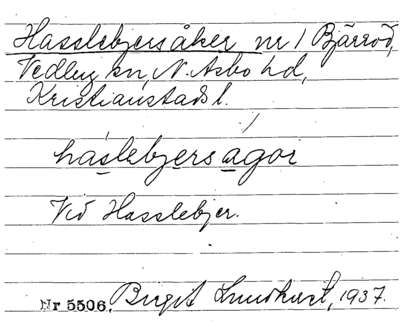 Hasslebjersåker nr 1 Bjärröd,
Vedby sn, N. Åsbo hd,
Kristianstads l.
háslebjersagor
Vid Hasslebjer.
Nr 5506, Birgit Lundkvist, 1937.